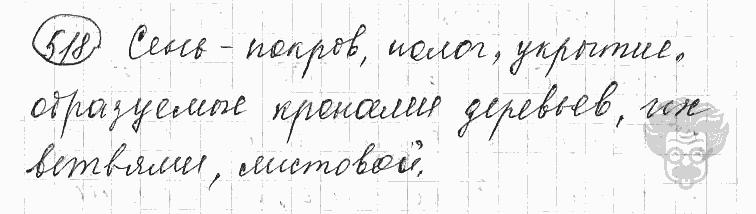 518 Сень – покров, полог, укрытие,
образуемые кронами деревьев, их
ветвями, листовой.